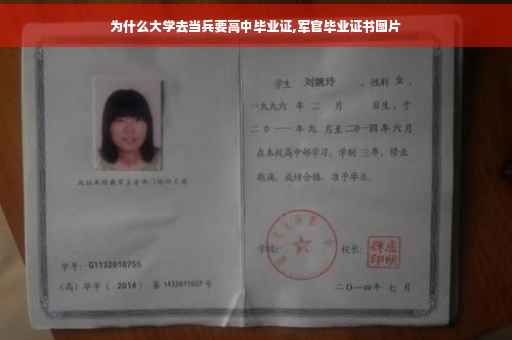 为什么大学去当兵要高中毕业证,军官毕业证书图片
学生 刘婉玲 ,性别 女 ,
一九九六 年 二 月 日生,于
二〇一一年九 月至二〇一四年六月
在本校高中部学习,学制 三年,修业
期满,成绩合格,准予毕业。
学号: G1132010755
(高)毕字( 2014 )第 1432011027 号
学校: 校长:
二〇一四年 七 月